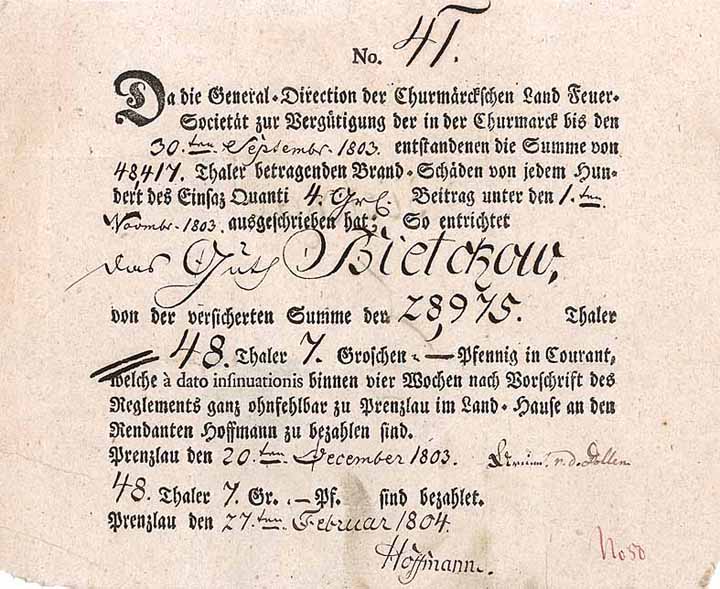 No. 41.
Da die General-Direction der Churmärckschen Land Feuer-
Societät zur Vergütigung der in der Churmarck bis den
30.ten Septembr. 1803. entstandenen die Summe von
48,417. Thaler betragenden Brand-Schäden von jedem Hun-
dert des Einsaz Quanti 4. Gr. Beitrag unter den 1.ten
Novembr. 1803. ausgeschrieben hat; So entrichtet
das Guth Bietckow,
von der versicherten Summe der 28,975. Thaler
48. Thaler 7. Groschen . — Pfennig in Courant,
welche à dato insinuationis binnen vier Wochen nach Vorschrift des
Reglements ganz ohnfehlbar zu Prenzlau im Land-Hause an den
Rendanten Hoffmann zu bezahlen sind.
Prenzlau den 20.ten December 1803. v. d. Dollen
48. Thaler 7. Gr. . — Pf. sind bezahlet.
Prenzlau den 27.ten Februar 1804.
Hoffmann.
No 50